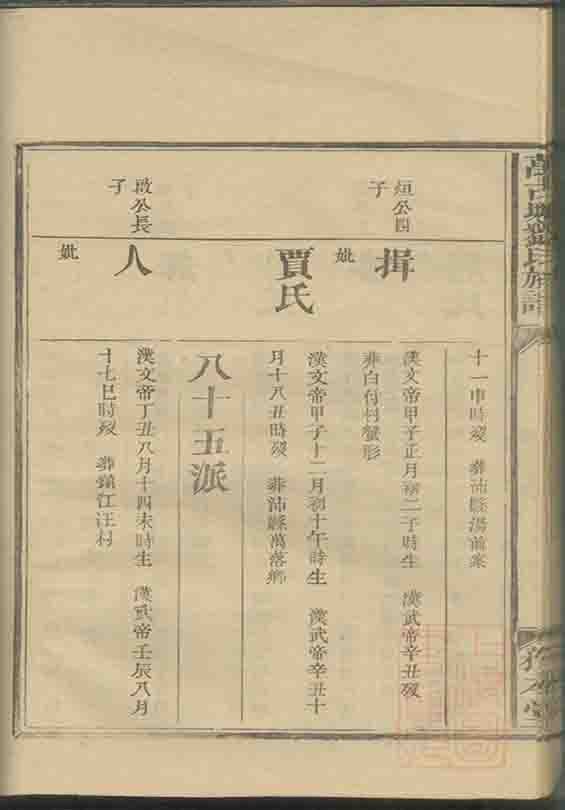 十一申時歿 葬沛縣湯前案
烜公四子
揖
漢文帝甲子正月初二子時生 漢武帝辛丑歿
葬白付村蟹形
妣
賈氏
漢文帝甲子十二月初十午時生 漢武帝辛丑十
月十八丑時歿 葬沛縣萬落鄉
八十五派
啟公長子
人
漢文帝丁丑八月十四未時生 漢武帝壬辰八月
十七巳時歿 葬鎮江汪村
妣